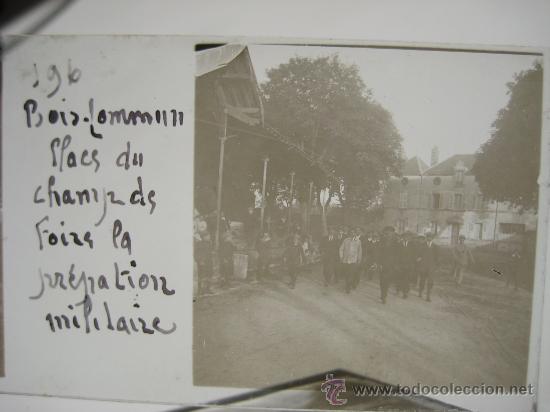 196
Bois-Commun
Place du
champ de
Foire la
prépation
militaire
todocoleccion
www.todocoleccion.net